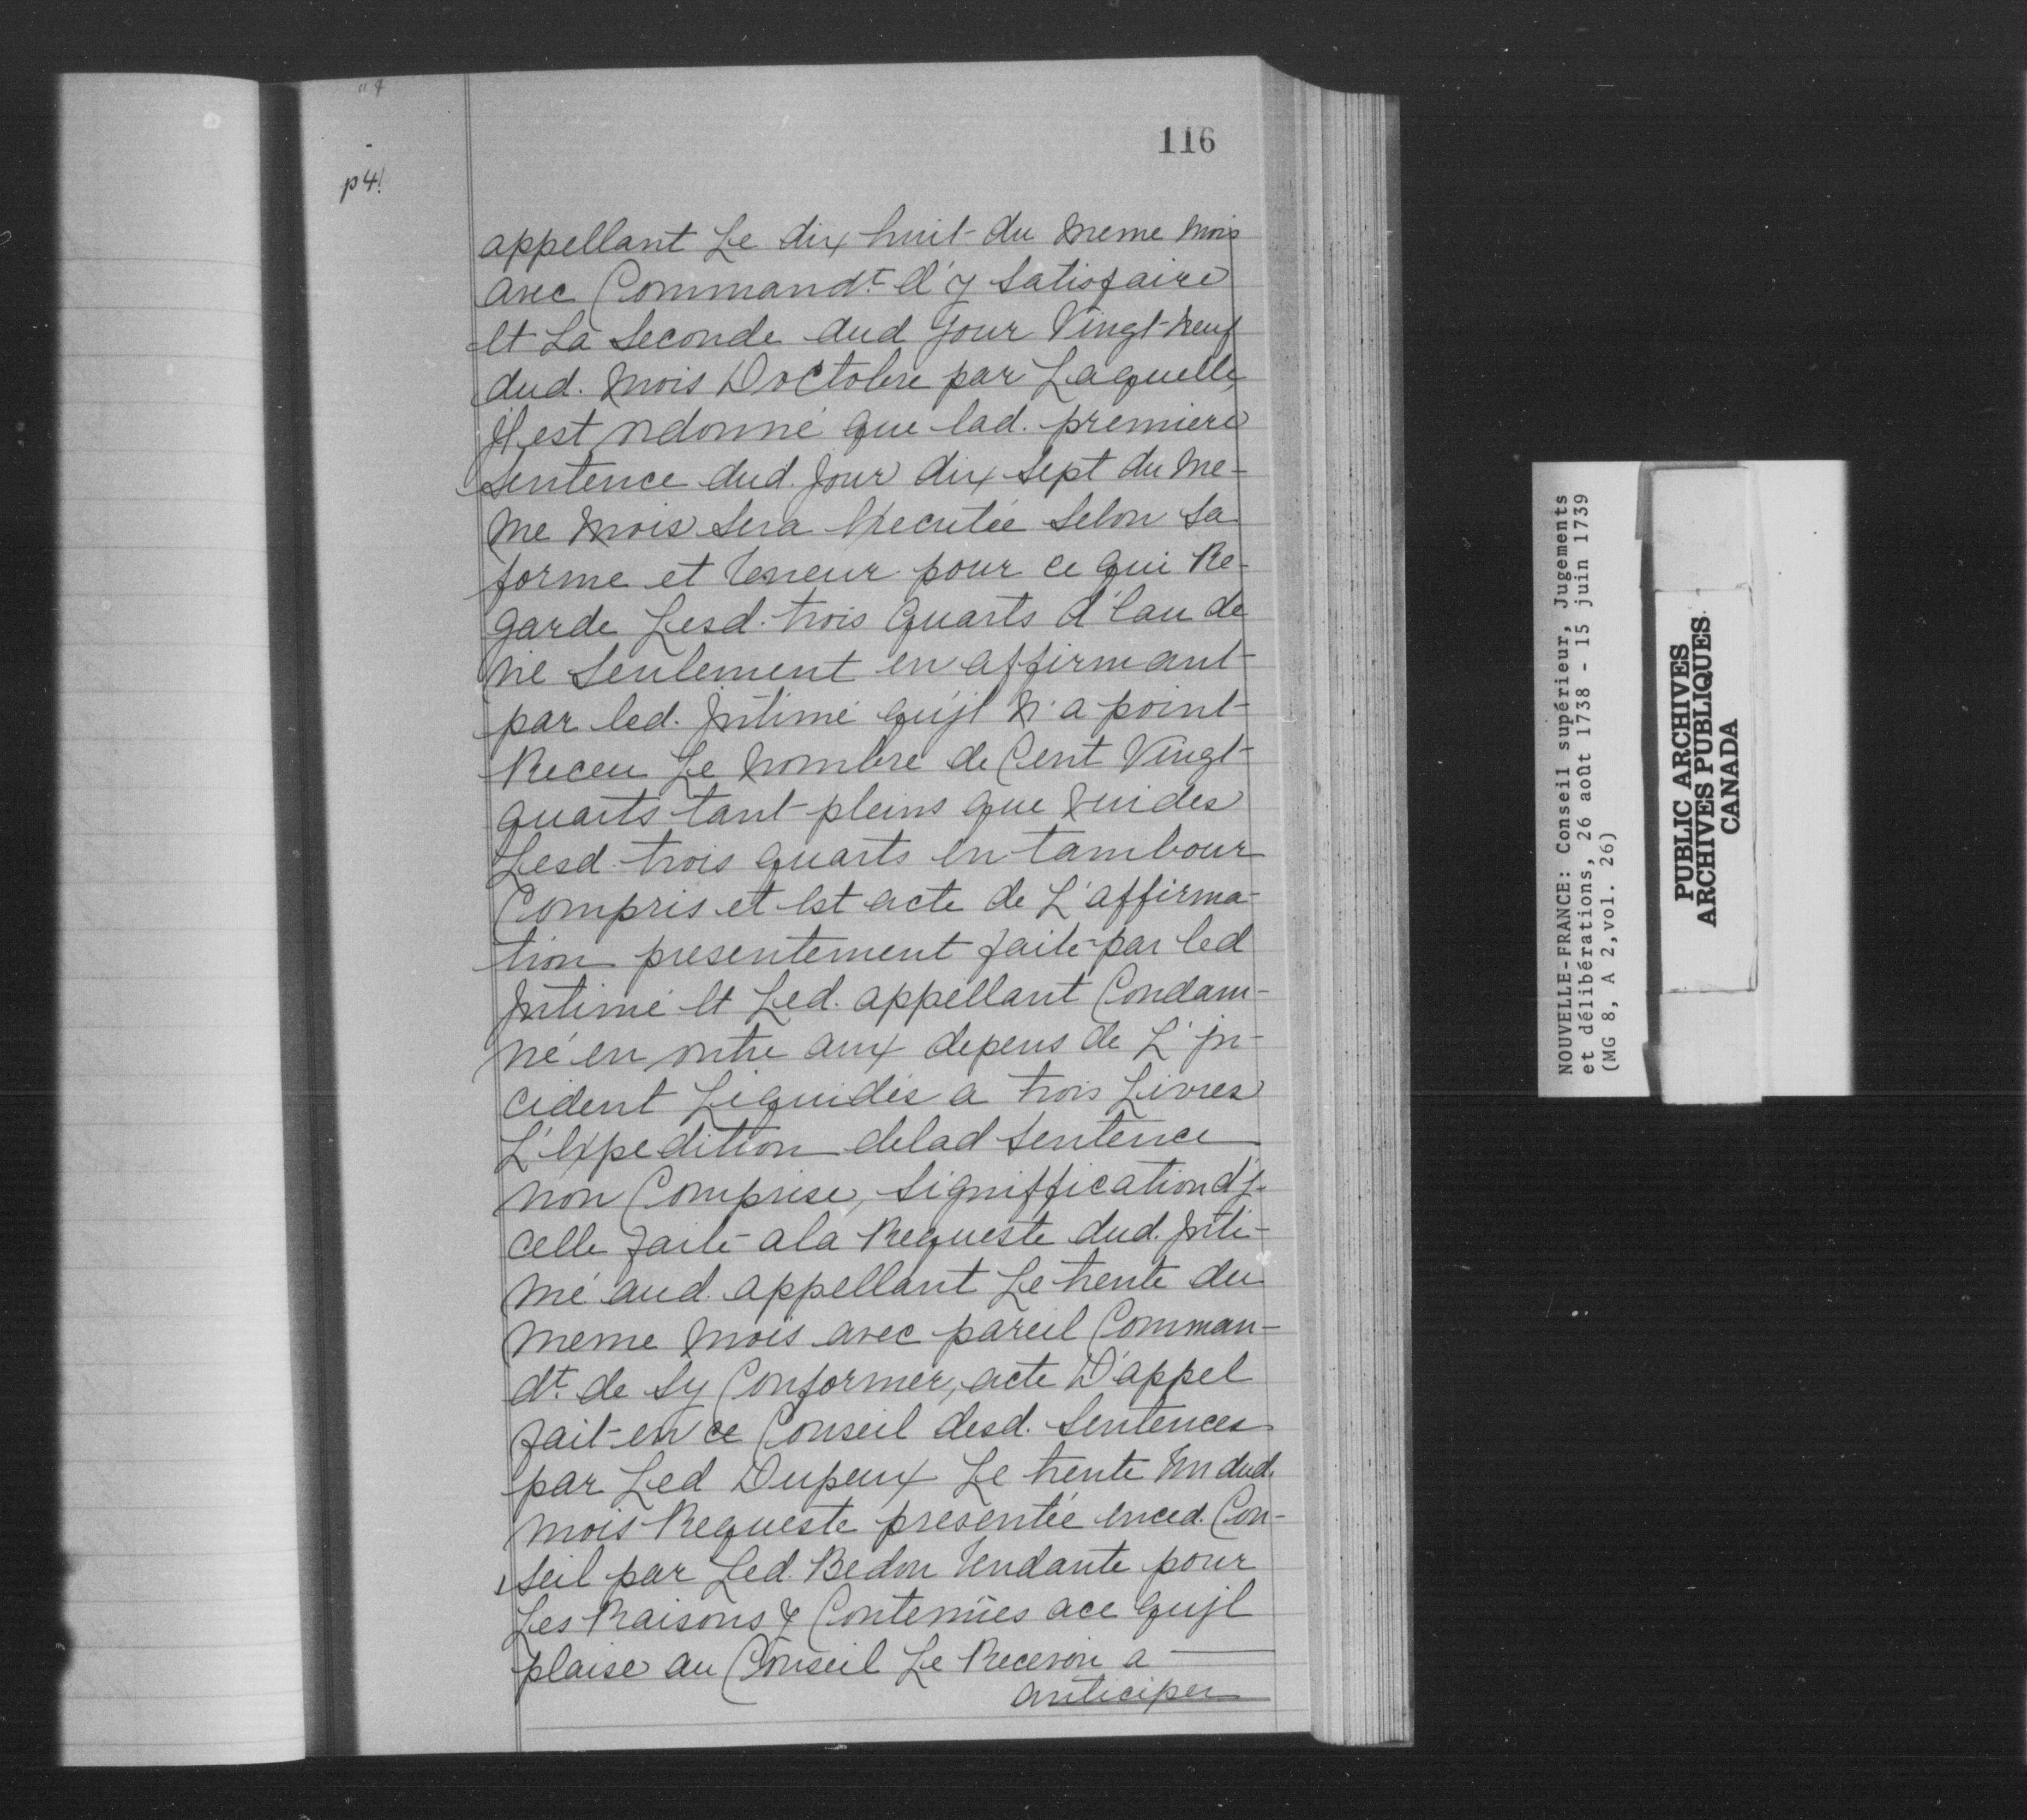 116
p4!
appellant Le dix huit du meme mois
avec Commandt. d'y Satisfaire
Et La Seconde dud Jour Vingt neuf
dud. mois Doctobre par Laquelle
Jl est ordonné que lad. premiere
Sentence dud. Jour dix Sept du me-
me mois Sera Executée Selon Sa
forme et Teneur pour ce qui Re-
garde Lesd. trois quarts d'Eau de
vie Seulement en affirmant
par led. Jntimé qujl N'a point
Receu Le nombre de Cent Vingt
quarts tant pleins que Vuides
Lesd. trois quarts En tambour
Compris et Est acte de L'affirma-
tion presentement faite par led
Jntimé Et Led. appellant Condam-
né en outre aux depens de L'Jn-
cident Liquidés a trois Livres
L'Expedition delad Sentence
non Comprise, Signiffication d'j-
celle faite a la Requeste dud. Jnti-
mé aud. appellant Le trente du
meme mois avec pareil Comman-
dt. de Sy Conformer, acte D'appel
fait en ce Conseil desd. Sentences
par Led Dupeux Le trente Un dud.
mois Requeste presentée enced. Con-
seil par Led. Bedou Tendante pour
Les Raisons y Contenües ace qujl
plaise au Conseil Le Recevoir a
anticiper
NOUVELLE-FRANCE: Conseil supérieur, Jugements
et délibérations, 26 août 1738 - 15 juin 1739
(MG 8, A 2,vol. 26)
PUBLIC ARCHIVES
ARCHIVES PUBLIQUES
CANADA